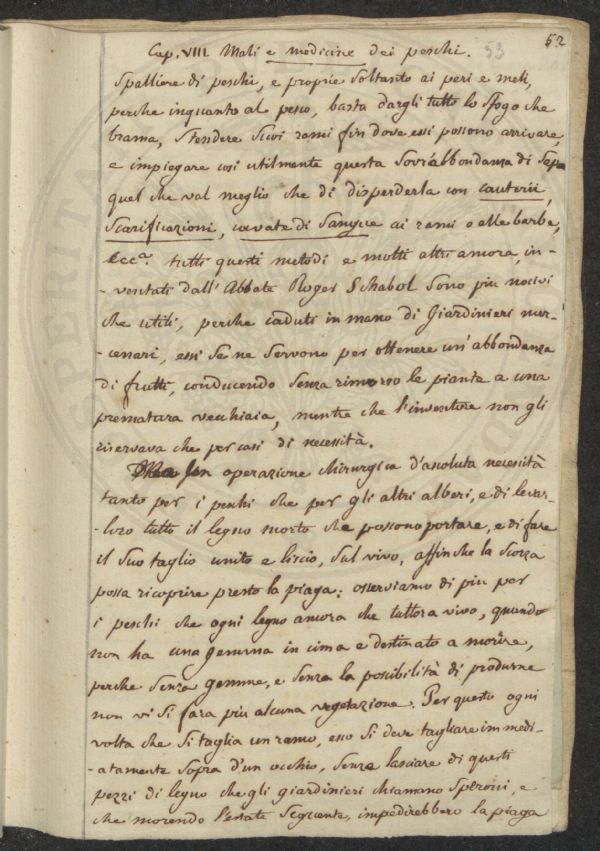 52
53
Cap. VIII Mali e medicine dei peschi.
Spalliere di peschi, e proprie soltanto ai peri e meli,
perche inquanto al pesco, basta dargli tutto lo sfogo che
brama, stendere suoi rami fin dove essi possono arrivare,
e impiegare così utilmente questa sovrabbondanza di
quel che val meglio che di disperderla con cauterii,
scarificazioni, cavate di sangue ai rami o alle barbe,
Ecc.ª tutti questi metodi e molti altri ancora, in-
-ventati dall' Abbate Roger Schabol sono piu nocivi
che utili, perche caduti in mano di Giardinieri mer-
-cenari, essi se ne servono per ottenere un' abbondanza
di frutti, conducendo senza rimorso le piante a una
prematura vecchiaia, mentre che l'inventore non gli
riservava che per casi di necessità.
operazione chirurgica d'assoluta necessità
tanto per i peschi che per gli altri alberi, e di levar-
-loro tutto il legno morto che possono portare, e di fare
il suo taglio unito e liscio, sul vivo, affinche la scorza
possa ricoprire presto la piaga: osserviamo di piu per
i peschi che ogni legno ancora che tuttora vivo, quando
non ha una gemma in cima e destinato a morire,
perche senza gemme, e senza la possibilità di produrne
non vi si fara più alcuna vegetazione. Per questo ogni
volta che si taglia un ramo, esso si deve tagliare immedi-
-atamente sopra d'un occhio, senza lasciare di questi
pezzi di legno che gli giardinieri chiamano speroni, e
che morendo l'estate seguente, impedirebbero la piaga